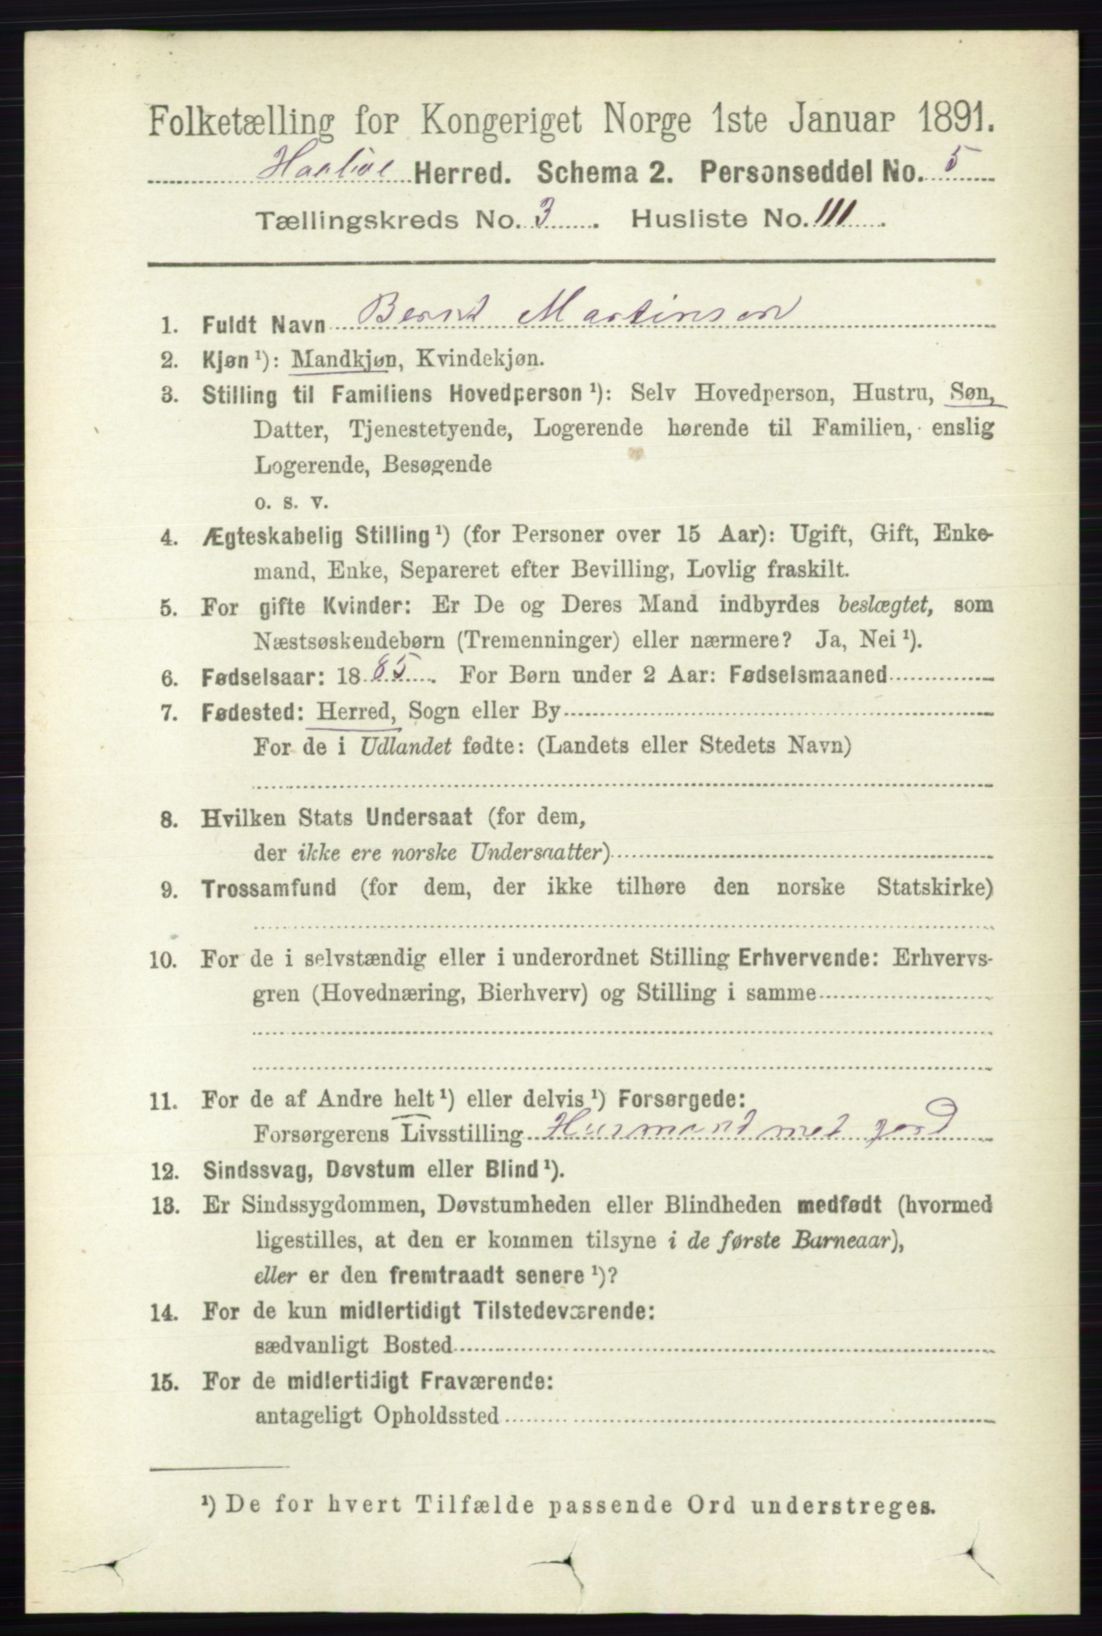 Folketælling for Kongeriget Norge 1ste Januar 1891.
Herred. Schema 2. Personseddel No. 5
Tællingskreds No. 3. Husliste No. 111.
1. Fuldt Navn Bernt Martinsen
2. Kjøn ¹): Mandkjøn, Kvindekjøn.
3. Stilling til Familiens Hovedperson ¹): Selv Hovedperson, Hustru, Søn,
Datter, Tjenestetyende, Logerende hørende til Familien, enslig
Logerende, Besøgende
o. s. v.
4. Ægteskabelig Stilling ¹) (for Personer over 15 Aar): Ugift, Gift, Enke-
mand, Enke, Separeret efter Bevilling, Lovlig fraskilt.
5. For gifte Kvinder: Er De og Deres Mand indbyrdes beslægtet, som
Næstsøskendebørn (Tremenninger) eller nærmere? Ja, Nei ¹).
6. Fødselsaar: 1885. For Børn under 2 Aar: Fødselsmaaned
7. Fødested: Herred, Sogn eller By
For de i Udlandet fødte: (Landets eller Stedets Navn)
8. Hvilken Stats Undersaat (for dem,
der ikke ere norske Undersaatter)
9. Trossamfund (for dem, der ikke tilhøre den norske Statskirke)
10. For de i selvstændig eller i underordnet Stilling Erhvervende: Erhvervs-
gren (Hovednæring, Bierhverv) og Stilling i samme
11. For de af Andre helt ¹) eller delvis ¹) Forsørgede:
Forsørgerens Livsstilling Husmand med jord
12. Sindssvag, Døvstum eller Blind ¹).
13. Er Sindssygdommen, Døvstumheden eller Blindheden medfødt (hvormed
ligestilles, at den er kommen tilsyne i de første Barneaar),
eller er den fremtraadt senere ¹)?
14. For de kun midlertidigt Tilstedeværende:
sædvanligt Bosted
15. For de midlertidigt Fraværende:
antageligt Opholdssted
¹) De for hvert Tilfælde passende Ord understreges.